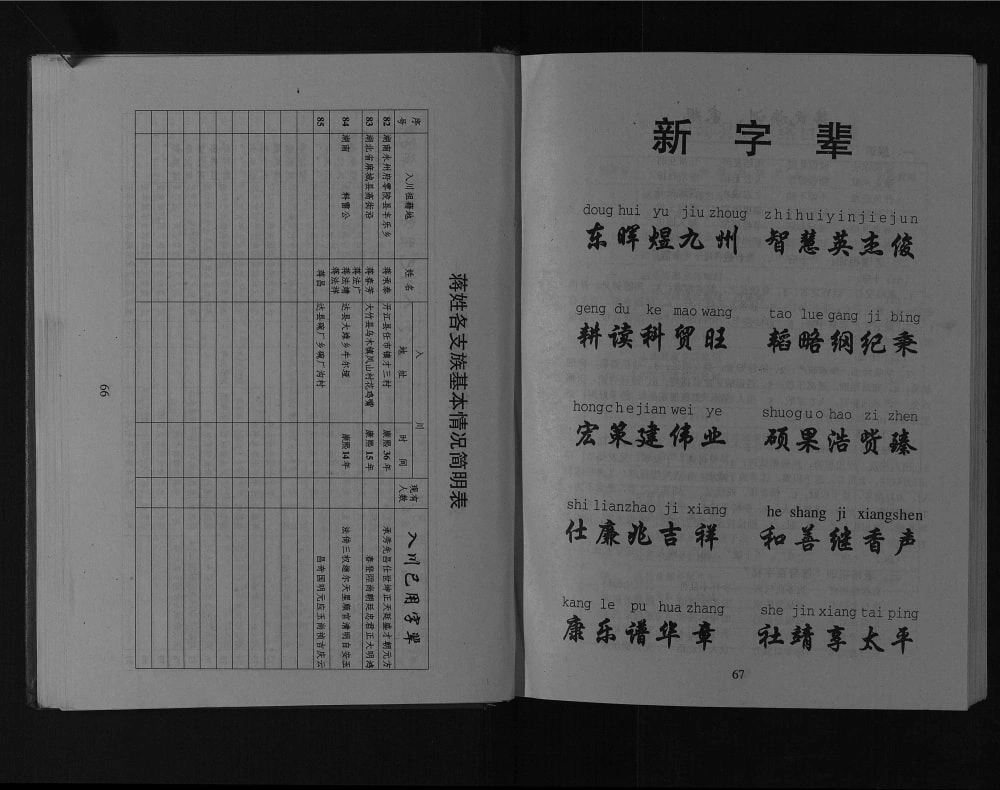 蒋姓各支族基本情况简明表
序号 入川祖籍地 姓名 入川 地址 时间 现有人数 入川已用字辈
82 湖南永州府零陵县丰乐乡 蒋承泰 开江县任市镇才三村 康熙36年 承秀先昌仕世坤正天廷盛才朝元方
83 湖北省麻城县高街沿 蒋春芳 大竹县乌木镇凤山村花鸡嘴 康熙15年 春登陛尚朝廷忠君正大明鸿
84 湖南 料曹公 蒋法广 蒋法增 蒋法祥 达县大滩乡牛尔垭 康熙14年 法倚三权继尔天星顺官清明自安玉
85 蒋昌 达县碗厂乡碗厂沟村 昌奇国明元应玉尚祯吉庆云
66
新字辈
doug hui yu jiu zhoug zhihuiyinjiejun
东晖煜九州 智慧英杰俊
geng du ke mao wang tao lue gang ji bing
耕读科贸旺 韬略纲纪秉
hongchejian wei ye shuoguo hao zi zhen
宏策建伟业 硕果浩赀臻
shi lianzhao ji xiang he shang ji xiangshen
仕廉兆吉祥 和善继香声
kang le pu hua zhang she jin xiang tai ping
康乐谱华章 社靖享太平
67